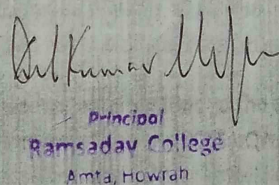 Kumar
Principal
Ramsaday College
Amta, Howrah